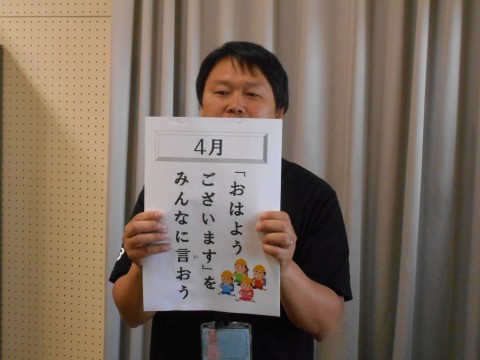 4月
「おはよう
ございます」を
みんなに言おう